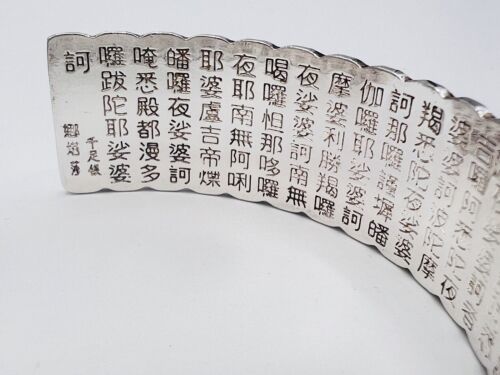 羯悉陀夜娑婆
訶那囉謹墀皤
伽囉耶娑婆訶
摩婆利勝羯囉
夜娑婆訶南無
喝囉怛那哆囉
夜耶南無阿唎
耶婆盧吉帝爍
皤囉夜娑婆訶
唵悉殿都漫多
囉跋陀耶娑婆
訶
千足銀